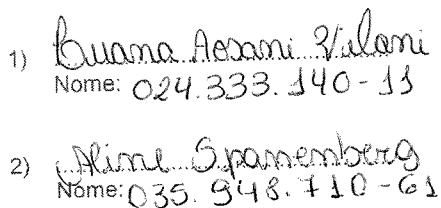 1) Luana Rosani Vilani
Nome: 024.333.140-11
2) Aline Spanemberg
Nome: 035.948.710-61